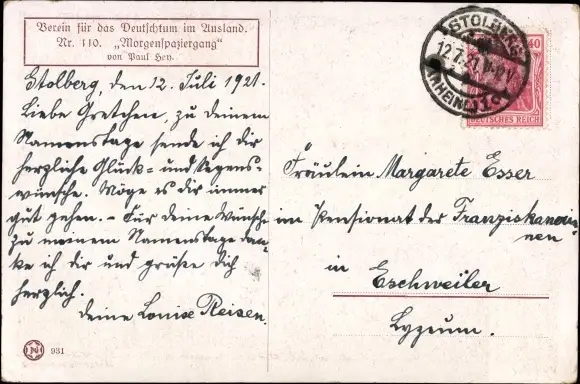 Verein für das Deutschtum im Ausland.
Nr. 110. „Morgenspaziergang"
von Paul Hey.
Stolberg, den 12. Juli 1921.
Liebe Gretchen, zu deinem
Namenstage sende ich dir
herzliche Glück- und Segens-
wünsche. Möge es dir immer
gut gehen. – Für deine Wünsche
zu meinem Namenstage dan-
ke ich dir und grüße dich
herzlich.
Deine Louise Reisen.
931
STOLBERG
12.7.21
(RHEINL.)
40
DEUTSCHES REICH
Fräulein Margarete Esser
im Pensionat der Franziskaneri-
nen
in
Eschweiler
Lyzeum.